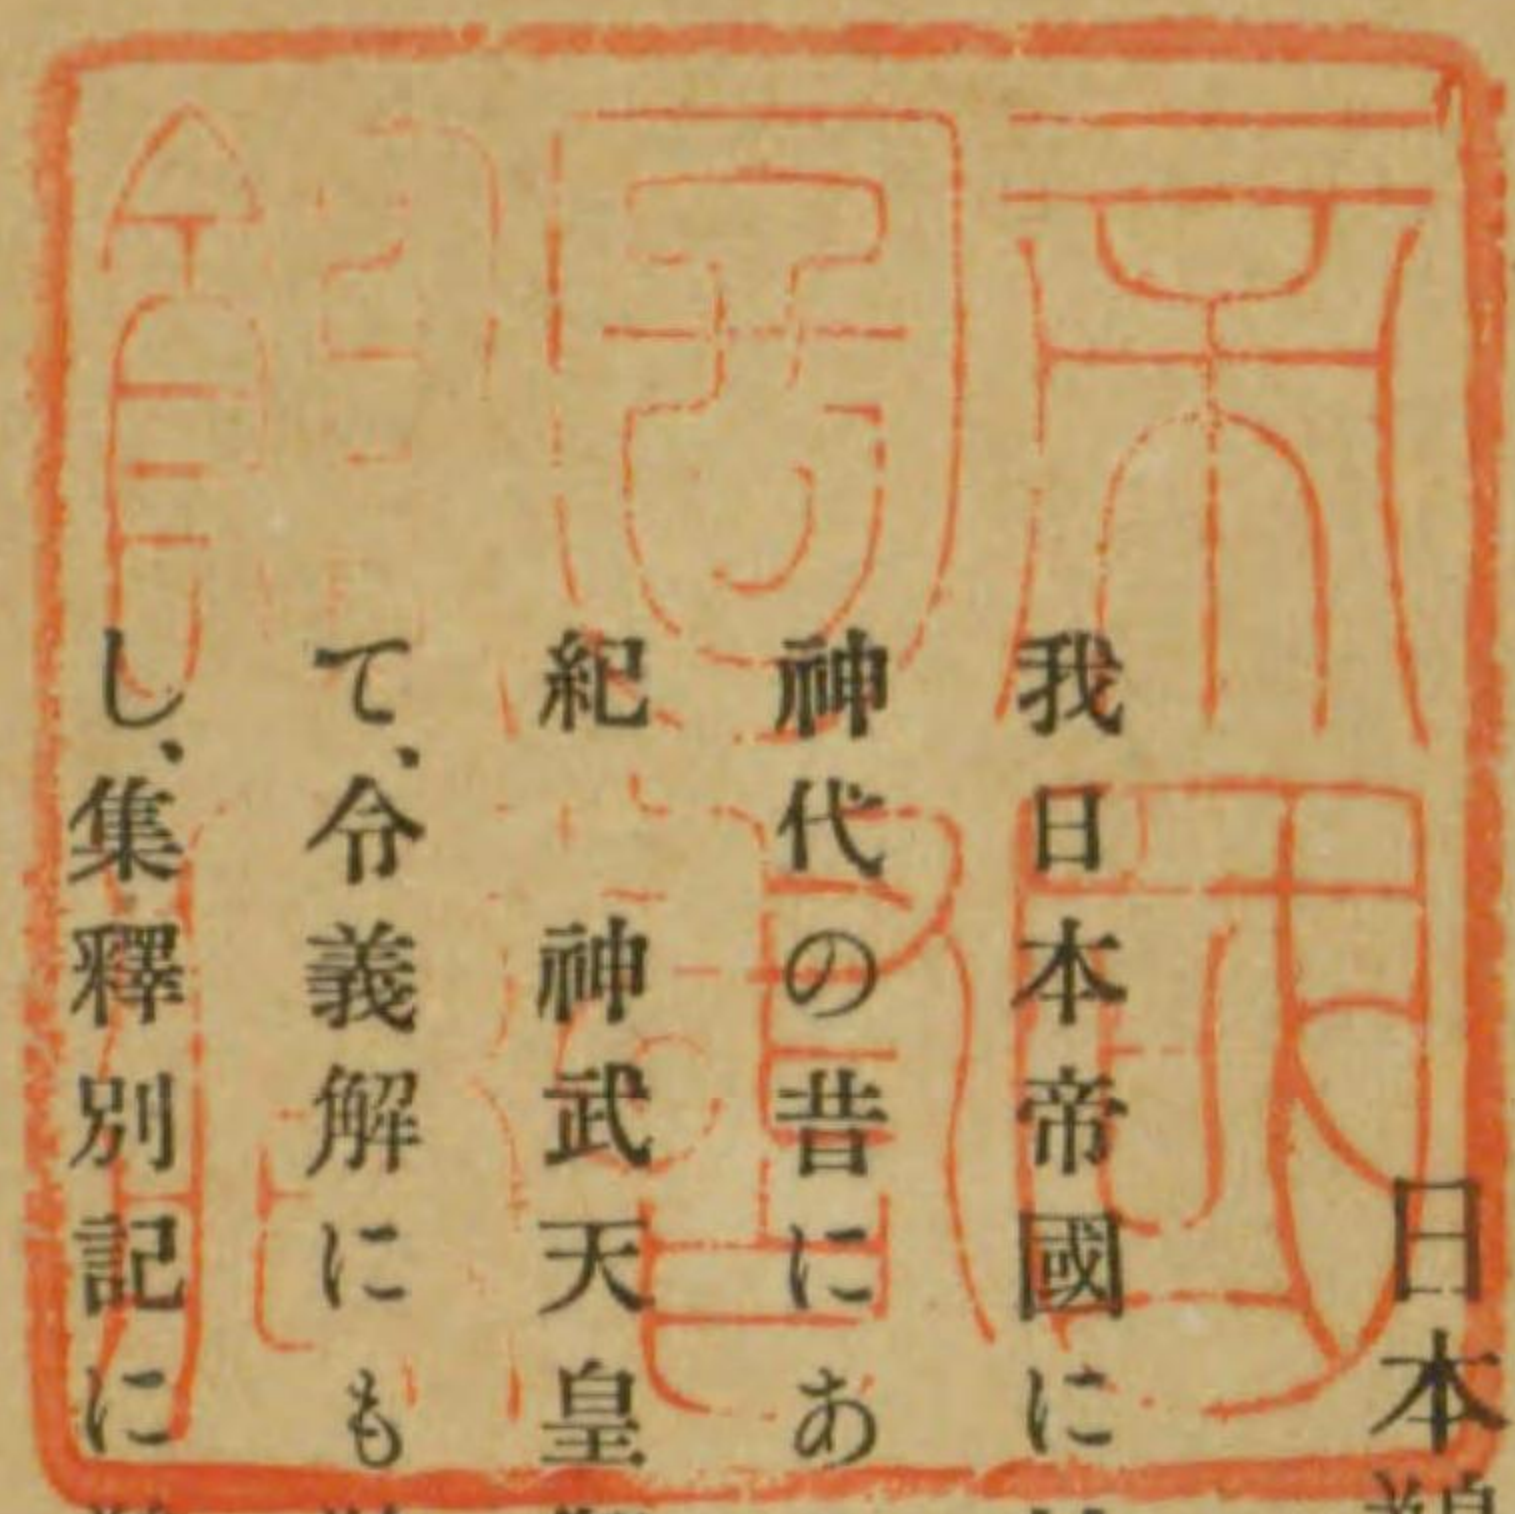 日本
我日本帝國に
神代の昔にあ
紀　神武天皇
て、令義解にも
し、集釋別記に
帝國
圖書
館藏